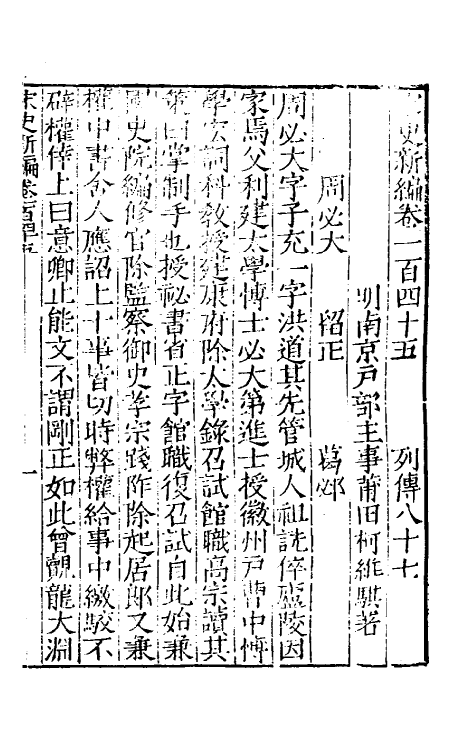 史新編卷一百四十五　列傳八十七
明南京戶部主事莆田柯維騏著
周必大　留正　葛邲
周必大字子充一字洪道其先管城人祖詵倅廬陵因
家焉父利建太學博士必大第進士授徽州戶曹中博
學宏詞科教授建康府除太學錄召試館職高宗讀其
策曰掌制手也授祕書省正字館職復召試自此始兼
國史院編修官除監察御史孝宗踐阼除起居郎又兼
權中書舍人應詔上十事皆切時弊權給事中繳駮不
辟權倖上曰意卿止能文不謂剛正如此曾覿龍大淵
宋史新編卷一百四十五
一